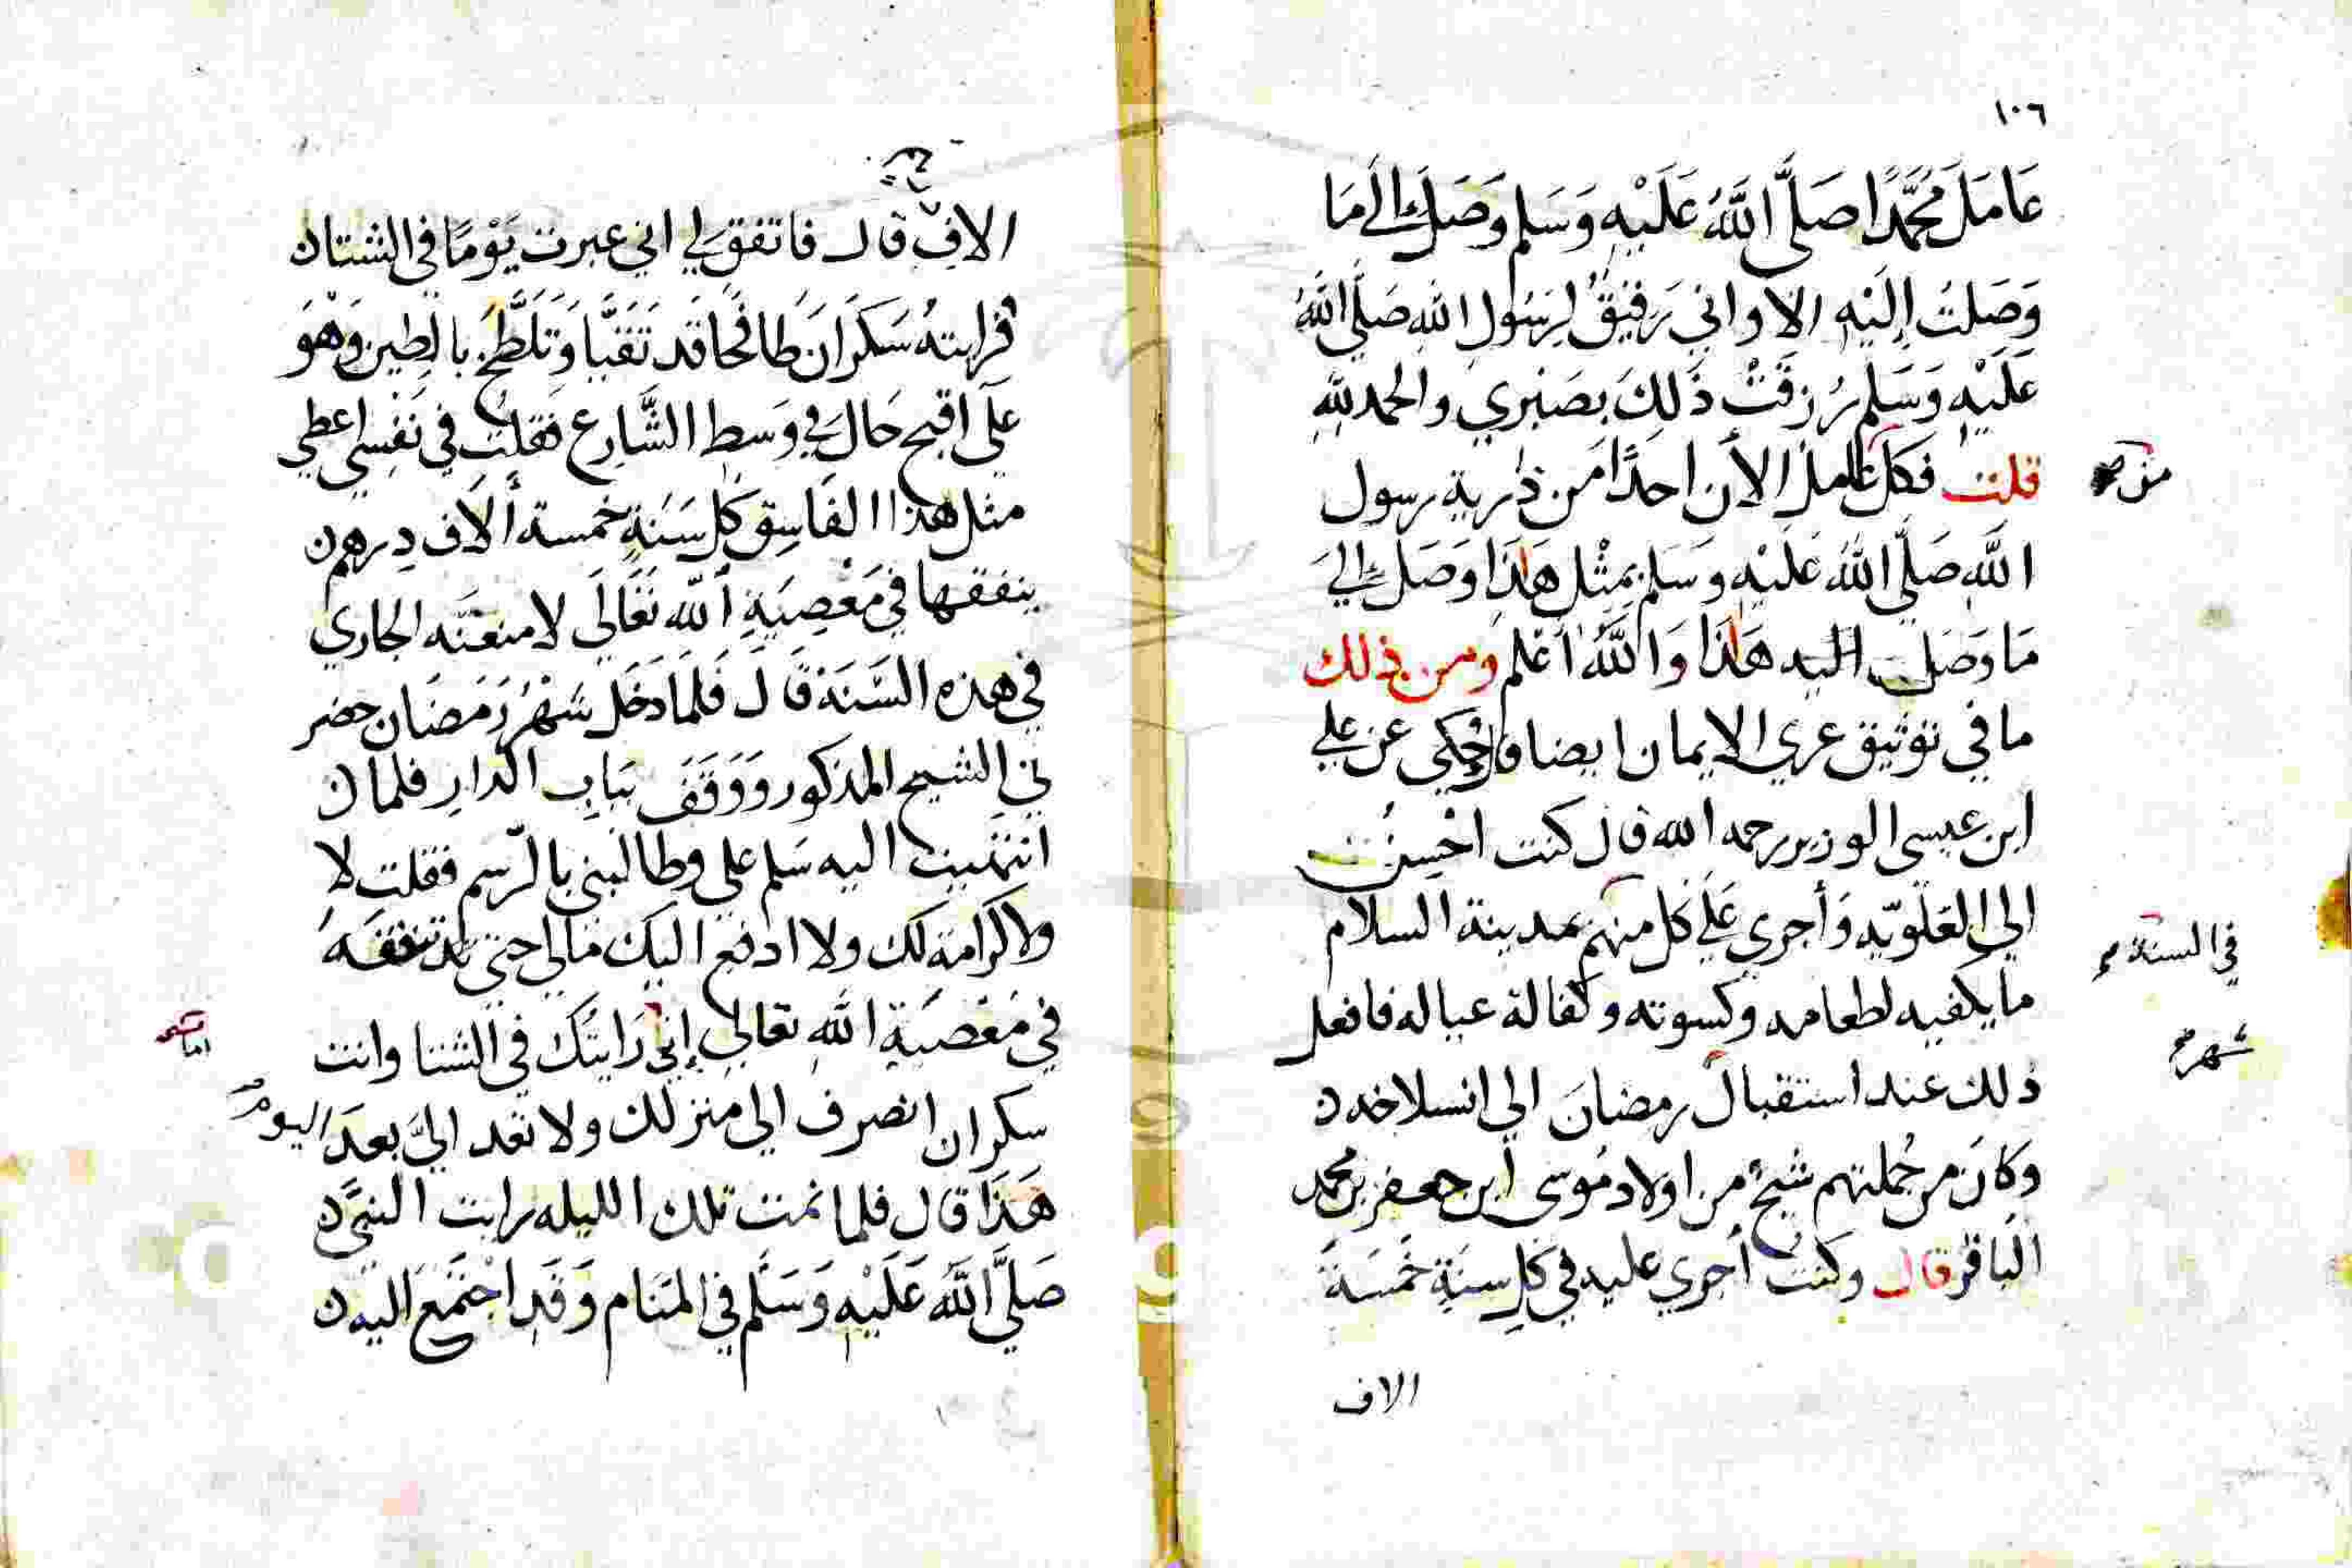 ١٠٦
عَامَلَ مُحَمَّدًا صَلَّى اللَّهُ عَلَيْهِ وَسَلم وَصَلَ إلَى مَا
وَصَلتُ إِلَيْهِ الا واني رَفيقٌ لِرَسُولِ اللهِ صَلَّى اللَّهُ
عَلَيْهِ وَسَلم رُزقتْ ذَلِكَ بصَبْري والحمد للهِ
قلت فكل عامل الأن احدًا من ذرية رسول
من صح
اللَّهِ صَلَّى اللهُ عَلَيْهِ وَسَلم بمِثْل هَذَا وَصَل إلي
مَا وَصَل اليه هَذا وَاللَّهُ أعْلم ومن ذلك
ما في توثيق عري الايمان ايضا وحُكي عن علي
ابن عيسى الوزير رحمه الله قال كنت احْسِنُ
الي العَلَويّه وَأجري عَلَى كل منهم بمدينة السلام
في السنة صح
ما يكفيه لطعامه وكسوته وكفالة عياله فافعل
ذلك عند استقبال رمضانَ الي انسلاخه
شهر صح
وَكانَ من جُملتهم شيخٌ من اولاد مُوسى ابن جعفر بن محمد
الباقر قال وكنت أجري عليه في كل سنةٍ خَمسَةَ
الاف
الافٍ قال فاتفق لي اني عبرت يَوْمًا في الشتاء
فرايتهُ سَكرَانَ طافحًا قد تَقَيَّا وَتَلَطَّخَ بالطين وَهْوَ
عَلَى اقبح حَال في وَسط الشَّارِع فقلت في نَفْسي اعطي
مثل هذا الفَاسِق كل سَنَةٍ خمسة ألاف دِرهم
ينفقها في مَعْصِيَةِ اللَّه تَعَالَى لامنعَنَّه الجاري
في هذه السَّنَة قَالَ فَلَمَا دَخَل شهْرُ رَمَضَان حضر
ني الشيخ المذكور وَوَقَفَ بِبَابِ الدارِ فلما
انتهَيت اليه سَلم علي وطالبني بالرّسم فقلت لا
ولا كرَامة لك ولا ادفع اليك مَالي حتي تنفقَهُ
في مَعْصِيَةِ اللَّهِ تعالي إنّي رَايتُكَ في الشتا وانت
اما صح
سكران انصرف الي منزلك ولا تعد اليَّ بعدَ اليوم
هَذَا قال فلما نمت تلك الليله رايت النبيَّ
صَلَّى اللَّهُ عَلَيْهِ وَسَلَّم في المَنَام وَقَد اجْتَمَعَ اليه